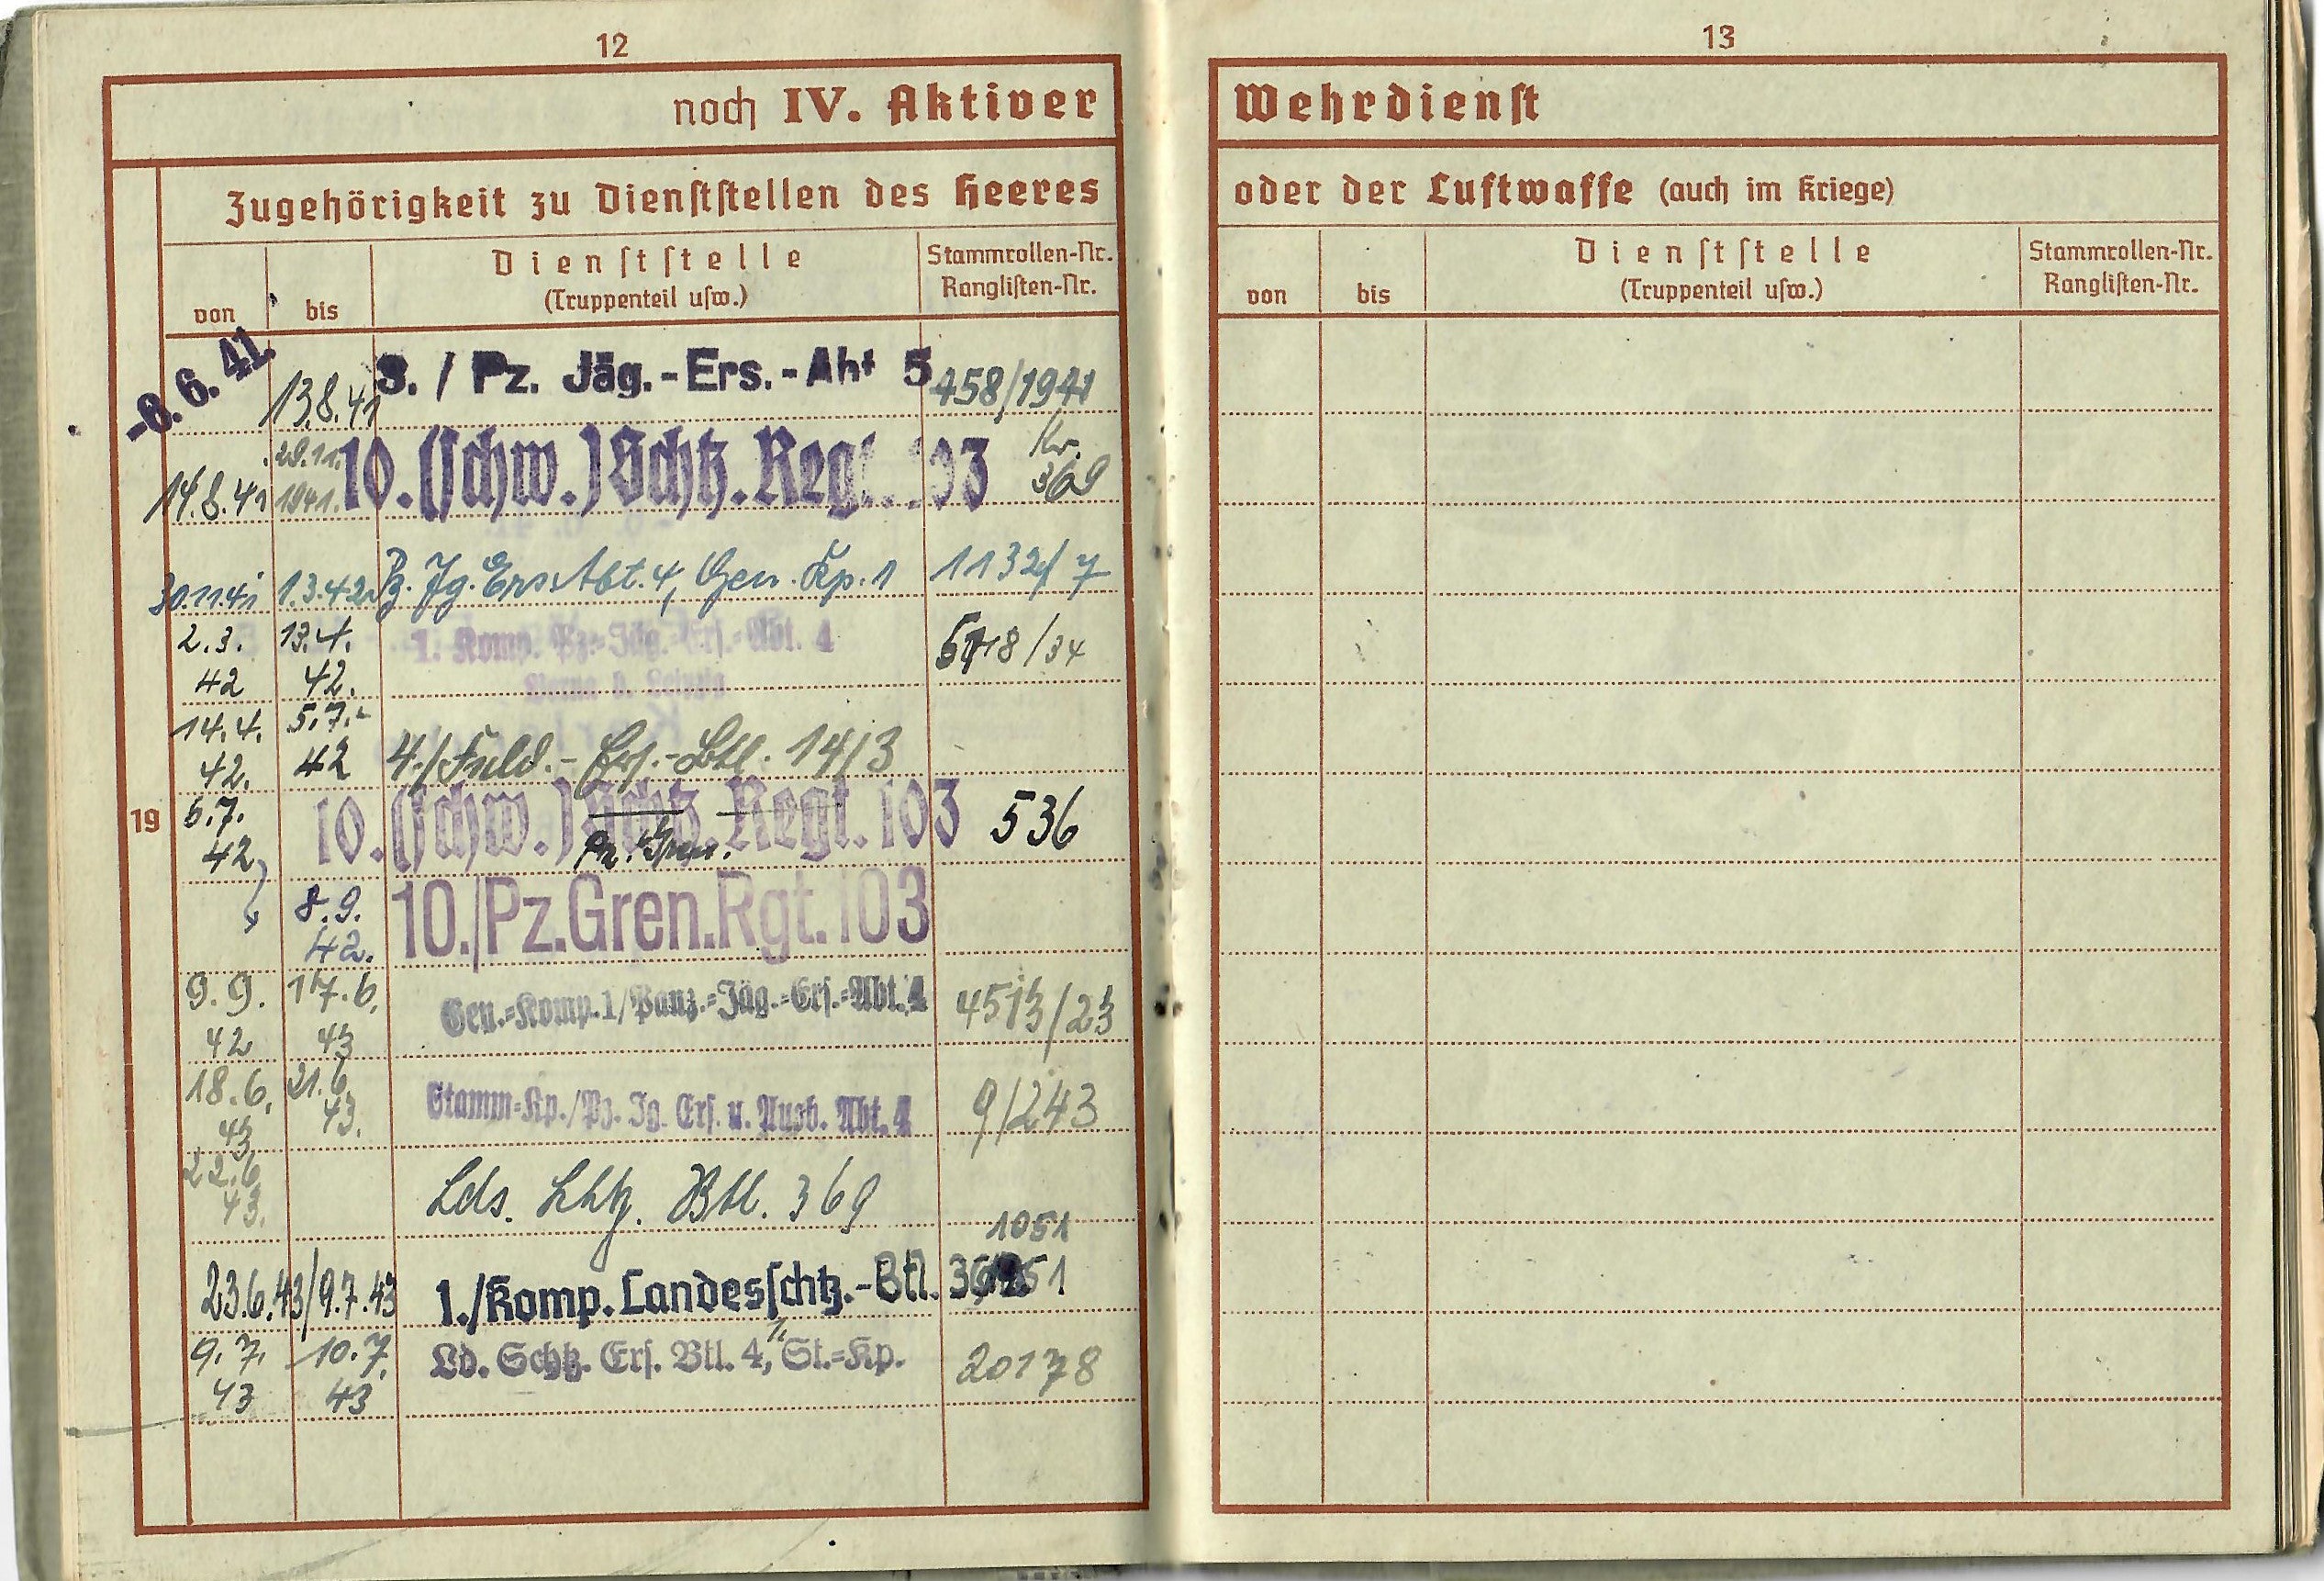 12
noch IV. Aktiver
Zugehörigkeit zu Dienststellen des Heeres
von
bis
Dienststelle
(Truppenteil usw.)
Stammrollen-Nr.
Ranglisten-Nr.
-8. 6. 41.
13.8.41
3. / Pz. Jäg.-Ers.-Abt 5
458/1941
14.8.41
29.11.
1941.
10. (schw.) Schtz. Regt. 103
Kr.
369
30.11.41
1.3.42
Pz. Jg. Ers. Abt. 4, Gen. Kp. 1
1132/7
2.3.
42
13.4.
42.
1. Komp. Pz.-Jäg.-Ers.-Abt. 4
Borna b. Leipzig
/34
14.4.
42.
5.7.-
42
4./Feld.-Ers.-Btl. 14/3
19
6.7.
42
10. (schw.) Schtz. Regt. 103
Pz. Gren.
536
8.9.
42.
10./Pz.Gren.Rgt.103
9.9.
42
17.6.
43
Gen.-Komp. 1/Panz.-Jäg.-Ers.-Abt. 4
4513/23
18.6.
43
21.6.
43.
Stamm-Kp./Pz. Jg. Ers. u. Ausb. Abt. 4
9/243
22.6.
43.
Lds. Schtz. Btl. 369
1051
23.6.43/9.7.43
1./Komp. Landesschtz.-Btl.
9.7.
43
10.7.
43
Ld. Schtz. Ers. Btl. 4, St.-Kp.
20178
13
Wehrdienst
oder der Luftwaffe (auch im Kriege)
von
bis
Dienststelle
(Truppenteil usw.)
Stammrollen-Nr.
Ranglisten-Nr.